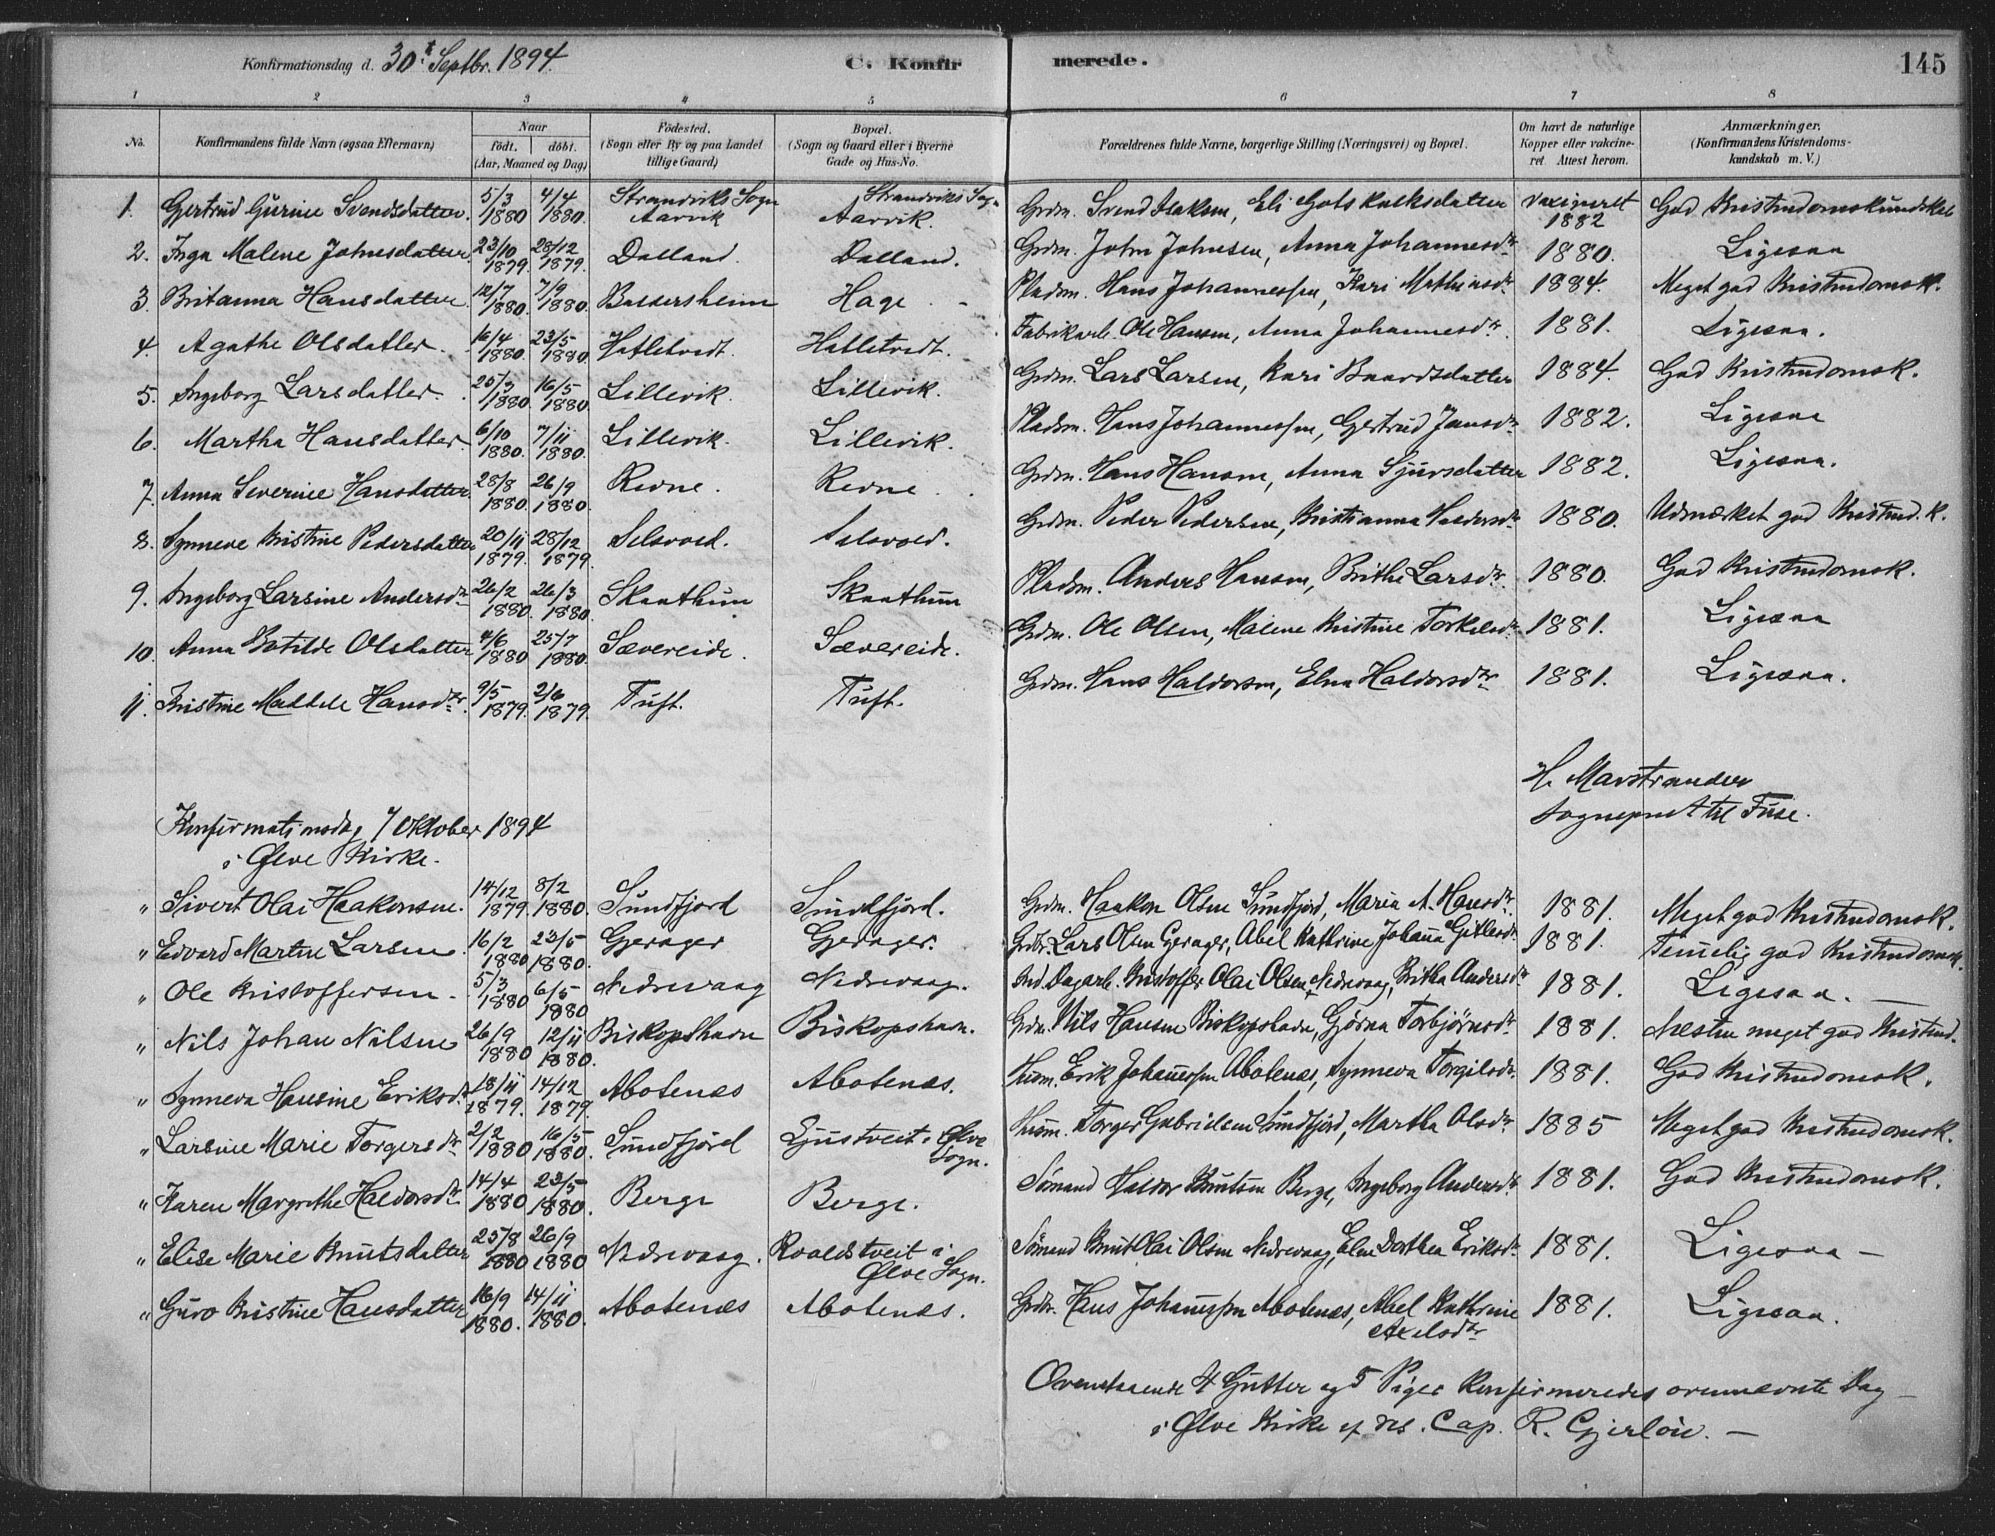 Konfirmationsdag d. 30t Septbr. 1894. C. Konfirmerede. 145
1 2 3 4 5 6 7 8
No. Konfirmandens fulde Navn (ogsaa Efternavn) Naar født. døbt. (Aar, Maaned og Dag) Fødested. (Sogn eller By og paa Landet tillige Gaard) Bopæl. (Sogn og Gaard eller i Byerne Gade og Hus-No. Forældrenes fulde Navne, borgerlige Stilling (Næringsvei) og Bopæl. Om havt de naturlige Kopper eller vaccineret Attest herom. Anmærkninger. (Konfirmandens Kristendomskundskab m. V.)
1. Gjertrud Gurine Svendsdatter. 5/3 1880 4/4 1880. Strandviks Sogn Aarvik Strandviks Sogn Aarvik. Grdm. Svend Isaksen, Eli Gotskalksdatter vaxineret 1882 God Kristendomskundskab
2. Inga Malene Johnesdatter. 23/10 1879. 28/12 1879. Dalland. Dalland. Grdm. John Johnsen, Anna Johannesdtr 1880. Ligesaa
3. Britanna Hansdatter. 12/7 1880. 7/9 1880. Hage Pladsm. Hans Johannessen, Kari Mathiasdtr 1884. Meget god Kristendomsk.
4. Agathe Olsdatter. 16/4 1880. 23/5 1880. Hatletvedt. Hatletvedt. Fabrikarb. Ole Hansen, Anna Johannesdtr. 1881. Ligesaa.
5. Ingeborg Larsdatter. 25/3 1880. 16/5 1880. Lillevik. Lillevik. Grdm. Lars Larsen, Kari Baardsdatter 1884. God Kristendomsk.
6. Martha Hansdatter. 6/10 1880. 7/11 1880. Lillevik. Lillevik. Pladsm. Hans Johannessen, Gjertrud Jansdtr 1882. Ligesaa
7. Anna Severine Hansdatter 28/8 1880. 26/9 1880. Revne. Revne Grdm. Hans Hansen, Anna Sjursdatter 1882. Ligesaa.
8. Synneve Kristine Pedersdatter 20/11 1879. 28/12 1879. Selsvold. Selsvold. Grdm. Peder Pedersen, Kristianna Haldorsdtr 1880. Udmærket god Kristend.k.
9. Ingeborg Larsine Andersdtr 26/2 1880. 26/3 1880. Skaathun Skaathun Pladsm. Anders Hansen, Brithe Larsdtr. 1880. God Kristendomsk.
10. Anna Botilde Olsdatter 4/6 1880 25/7 1880. Sævereide. Sævereide. Grdm. Ole Olsen, Malene Kristine Torkelsdtr 1881. Ligesaa
11. Kristine Mathilde Hansdtr. 9/5 1879. 2/6 1879. Tuft. Tuft. Grdm. Hans Haldorsen, Elna Haldorsdtr 1881. Ligesaa.
H. Marstrander
Sogneprest til Fuse.
Konfirmationsdag 7 Oktober 1894
i Ølve Kirke.
" Sivert Olai Haakonsen. 14/12 1879. 8/2 1880. Sundfjord Sundfjord. Grdm. Haakon Olsen Sundfjord, Maria A. Hansdtr. 1881. Meget god Kristendomsk.
" Edvard Martin Larsen. 16/2 1880 23/5 1880. Gjerager Gjerager. Lars Olsen Gerager, Abel Kathrine Johanna Gitlesdtr 1881. Temelig god Kristendomsk.
" Ole Kristoffersen. 5/3 1880 6/5 1880 Nedrevaag Nedrevaag. Dagarb. Kristoffer Olai Olsen Nedrevaag, Britha Andersdtr 1881. Ligesaa.
" Nils Johan Nilsen 26/9 1880 12/11 1880. Biskopshavn Biskopshavn. Grdm. Nils Hansen Biskopshavn, Gjørna Torbjørnsdtr 1881. Næsten meget god Kristend.
" Synneva Hansine Eriksdtr 18/11 1879. 14/12 1879. Abotenæs Abotenæs. Husm. Erik Johannessen Abotenæs, Synneva Torgilsdtr. 1881. God Kristendomsk.
" Larsine Marie Torgersdtr 2/2 1880 16/5 1880. Sundfjord Ljustveit i Ølve Sogn. Husm. Torger Gabrielsen Sundfjord, Martha Olsdtr 1885 Meget god Kristendomsk.
" Karen Margrethe Haldorsdtr 14/4 1880 23/5 1880. Berge Berge. Sømand Haldor Knutsen Berge, Ingeborg Andersdtr 1881. God Kristendomsk.
" Elise Marie Knutsdatter 25/8 1880 26/9 1880 Nedrevaag. Roaldstveit i Ølve Sogn. Sømand Knut Olai Olsen Nedrevaag, Elen Dorthea Eriksdtr 1881. Ligesaa
" Guro Kristine Hansdatter 16/9 1880. 14/11 1880. Abotenæs Abotenæs. Grdbr. Hans Johannessen Abotenæs, Abel Kathrine Axelsdtr 1881. Ligesaa.
Ovenstaaende 4 Gutter og 5 Piger konfirmeredes ovennævnte Dag
i Ølve Kirke af res. Cap. R. Gjerløw.